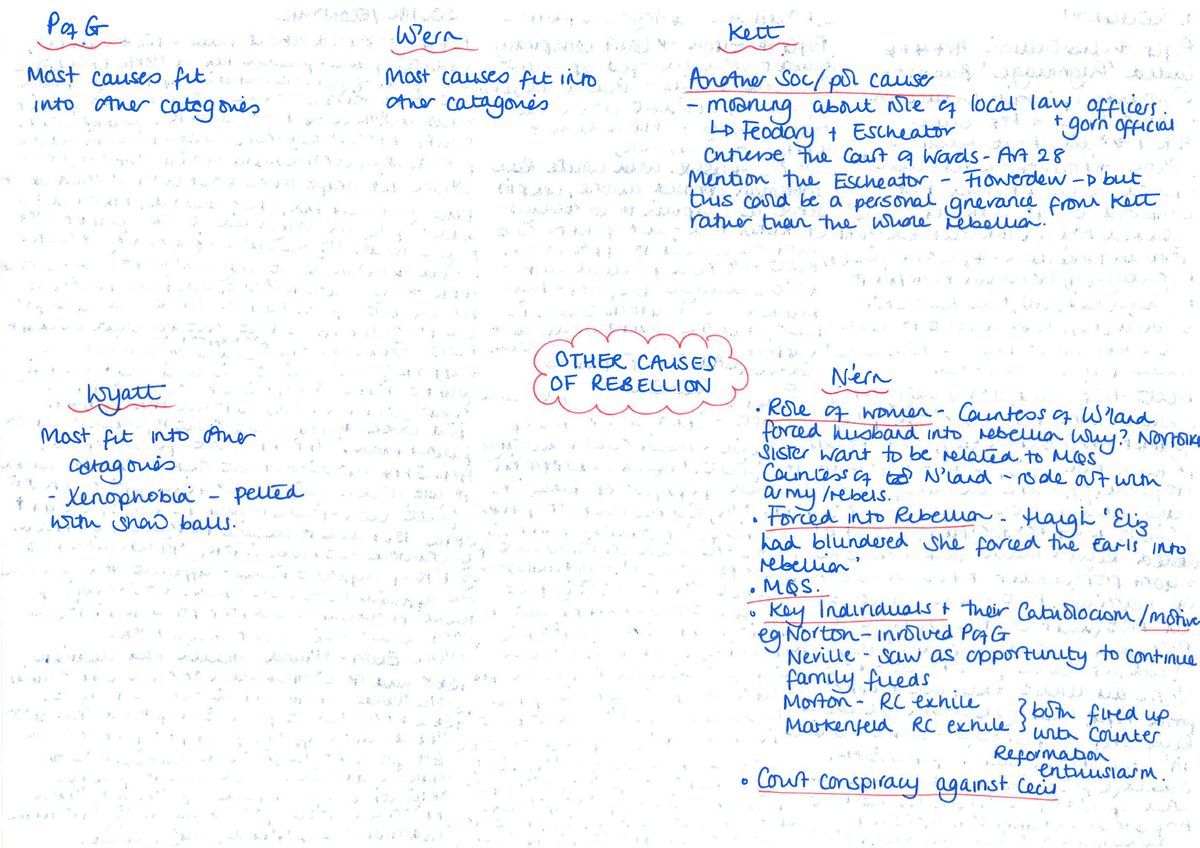 P of G
Most causes fit
into other categories
W'ern
Most causes fit into
other catagories
Kett
Another soc/pol cause
- moaning about role of local law officers.
↳ Feodary + Escheator + gov'n official
Critierse the Court of Wards - Art 28
Mention the Escheator - Flowerdew -> but
this could be a personal grievance from Kett
rather than the whole rebellion.
OTHER CAUSES
OF REBELLION
Wyatt
Most fit into other
catagories
- Xenophobia - pelted
with snow balls.
N'ern
• Role of women - Countess of W'land
forced husband into rebellion Why? Norfolk
sister want to be related to MQS
Countess of N'land - rode out with
army/rebels.
• Forced into Rebellion - Haigh 'Eliz
had blundered she forced the Earls into
rebellion'
• MQS.
• Key Individuals + their Catholocism/motive
eg Norton - involved P of G
Neville - saw as opportunity to continue
family fueds
Morton - RC exhile
Markenfeld RC exhile } both fired up
with Counter
Reformation
enthusiasm.
• Court conspiracy against Cecil